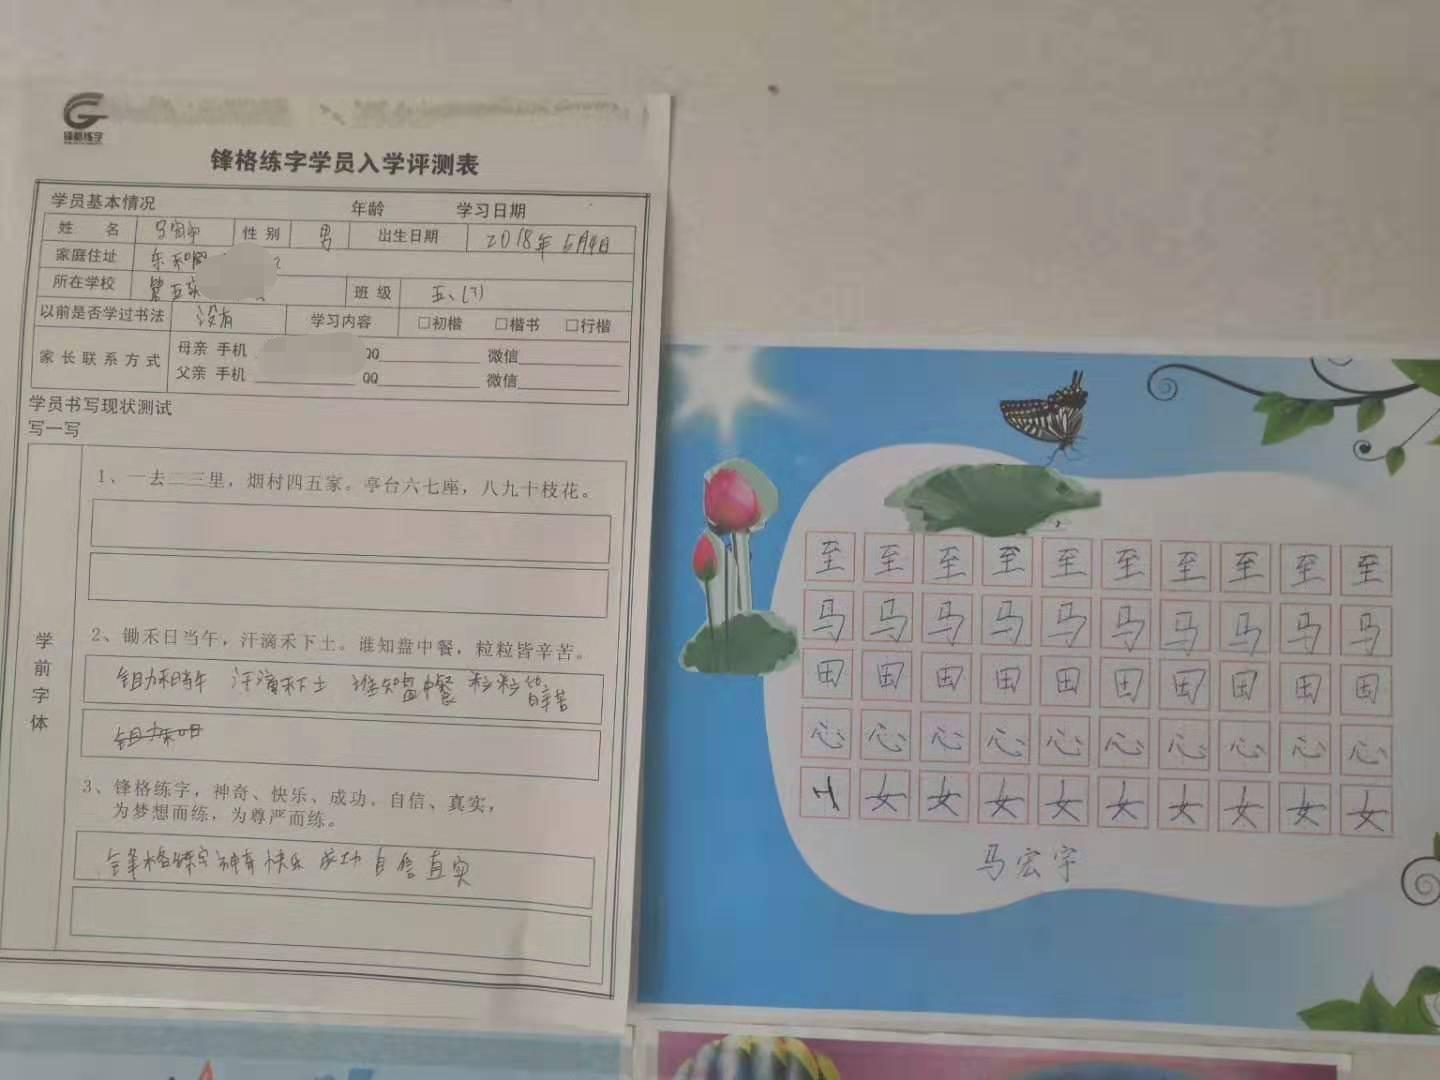 锋格练字
锋格练字学员入学评测表
学员基本情况 年龄 学习日期
姓 名 马宏宇 性 别 男 出生日期 2018年5月4日
家庭住址 东
所在学校 第五 班 级 五、(3)
以前是否学过书法 没有 学习内容 □初楷 □楷书 □行楷
家长联系方式 母亲 手机 QQ 微信
父亲 手机 QQ 微信
学员书写现状测试
写一写
学前字体
1、一去二三里，烟村四五家。亭台六七座，八九十枝花。
2、锄禾日当午，汗滴禾下土。谁知盘中餐，粒粒皆辛苦。
锄禾 午 汗滴禾下土 谁知盘中餐 粒粒皆辛苦
锄禾日
3、锋格练字，神奇、快乐、成功。自信、真实，
为梦想而练，为尊严而练。
锋格练字神奇快乐 成功 自信真实
至 至 至 至 至 至 至 至 至 至
马 马 马 马 马 马 马 马 马 马
田 田 田 田 田 田 田 田 田 田
心 心 心 心 心 心 心 心 心 心
女 女 女 女 女 女 女 女 女
马宏宇